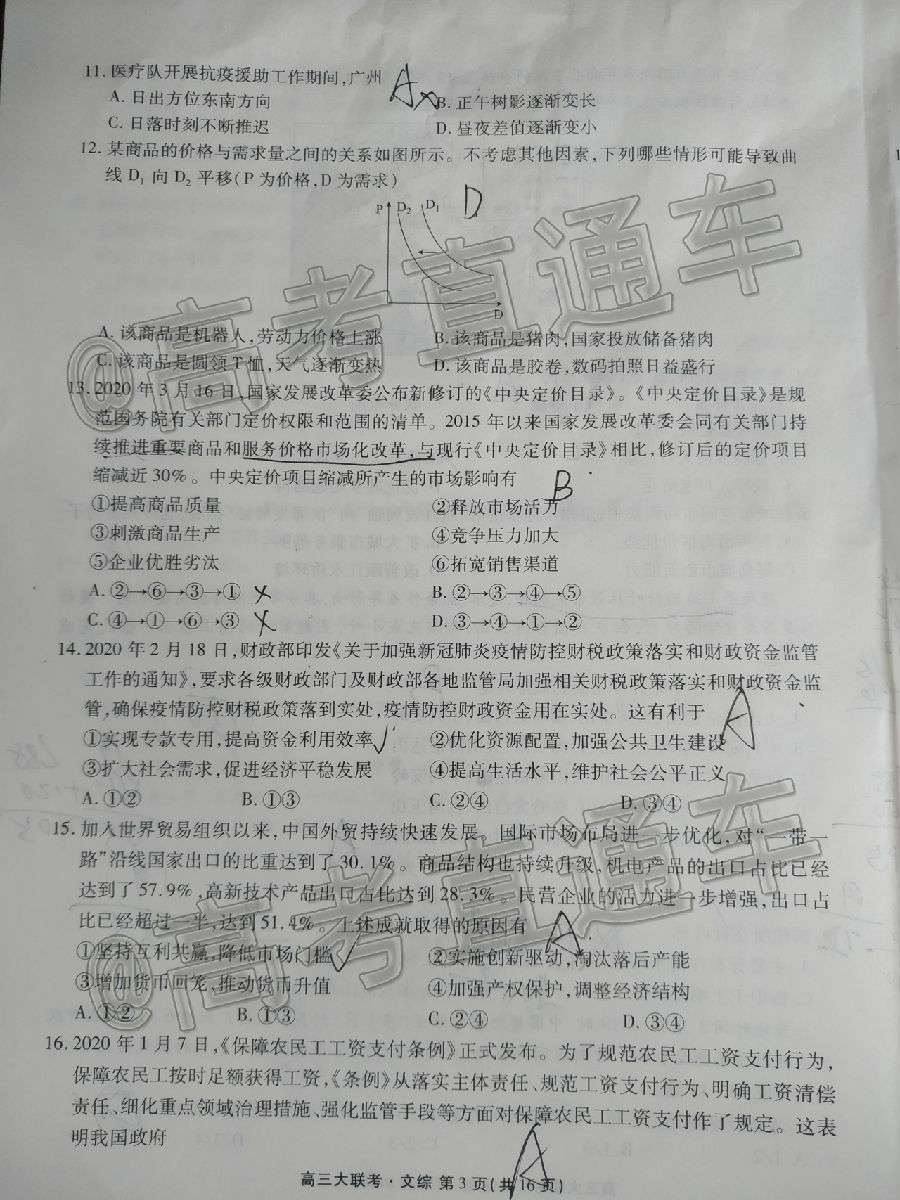 11. 医疗队开展抗疫援助工作期间,广州 A
A. 日出方位东南方向 B. 正午树影逐渐变长
C. 日落时刻不断推迟 D. 昼夜差值逐渐变小
12. 某商品的价格与需求量之间的关系如图所示。不考虑其他因素,下列哪些情形可能导致曲
线 D₁ 向 D₂ 平移(P 为价格,D 为需求) D
P D₂ D₁
D
A. 该商品是机器人,劳动力价格上涨 B. 该商品是猪肉,国家投放储备猪肉
C. 该商品是圆领T恤,天气逐渐变热 D. 该商品是胶卷,数码拍照日益盛行
13. 2020 年 3 月 16 日,国家发展改革委公布新修订的《中央定价目录》。《中央定价目录》是规
范国务院有关部门定价权限和范围的清单。2015 年以来国家发展改革委会同有关部门持
续推进重要商品和服务价格市场化改革,与现行《中央定价目录》相比,修订后的定价项目
缩减近 30%。中央定价项目缩减所产生的市场影响有 B
①提高商品质量 ②释放市场活力
③刺激商品生产 ④竞争压力加大
⑤企业优胜劣汰 ⑥拓宽销售渠道
A. ②→⑥→③→① B. ②→③→④→⑤
C. ④→①→⑥→③ D. ③→④→①→②
14. 2020 年 2 月 18 日,财政部印发《关于加强新冠肺炎疫情防控财税政策落实和财政资金监管
工作的通知》,要求各级财政部门及财政部各地监管局加强相关财税政策落实和财政资金监
管,确保疫情防控财税政策落到实处,疫情防控财政资金用在实处。这有利于 A
①实现专款专用,提高资金利用效率 ②优化资源配置,加强公共卫生建设
③扩大社会需求,促进经济平稳发展 ④提高生活水平,维护社会公平正义
A. ①② B. ①③ C. ②④ D. ③④
15. 加入世界贸易组织以来,中国外贸持续快速发展。国际市场布局进一步优化,对“一带一
路”沿线国家出口的比重达到了 30.1%。商品结构也持续升级,机电产品的出口占比已经
达到了 57.9%,高新技术产品出口占比达到 28.3%。民营企业的活力进一步增强,出口占
比已经超过一半,达到 51.4%。上述成就取得的原因有 A
①坚持互利共赢,降低市场门槛 ②实施创新驱动,淘汰落后产能
③增加货币回笼,推动货币升值 ④加强产权保护,调整经济结构
A. ①② B. ①③ C. ②④ D. ③④
16. 2020 年 1 月 7 日,《保障农民工工资支付条例》正式发布。为了规范农民工工资支付行为,
保障农民工按时足额获得工资,《条例》从落实主体责任、规范工资支付行为、明确工资清偿
责任、细化重点领域治理措施、强化监管手段等方面对保障农民工工资支付作了规定。这表
明我国政府 A
高三大联考·文综 第 3 页(共 16 页)
@高考直通车
@高考直通车